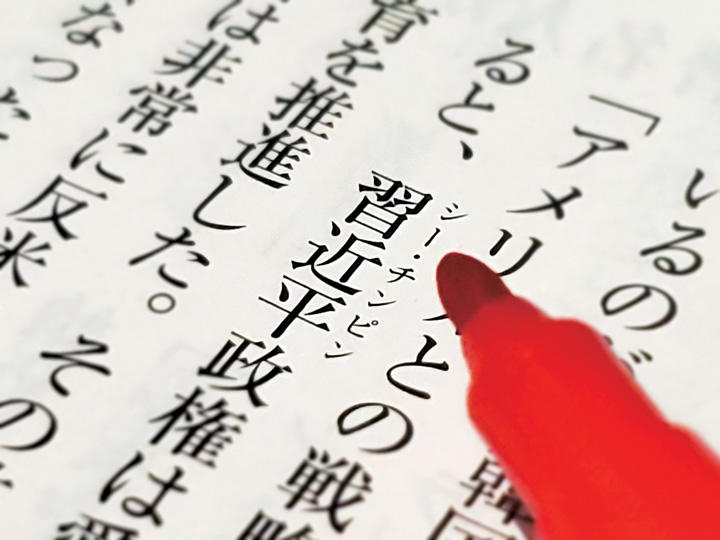 いるのが 韓国
「アメリカとの戦略
ると、習近平政権は愛
シー・チンピン
育を推進した。その
は非常に反米
なった